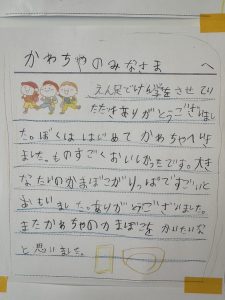 かわちやのみなさま へ
えん足でけん学をさせてい
ただきありがとうございまし
た。ぼくははじめてかわちやへいき
ました。ものすごくおいしかったです。大き
なたいのかまぼこがりっぱですごいと
おもいました。ありがとうございました。
またかわちやのかまぼこをかいたいな
と思いました。